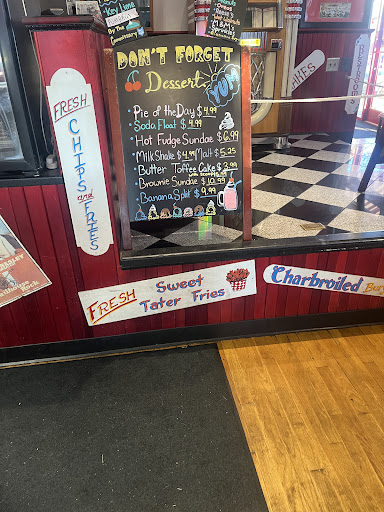 Key Lime
By The
Commissary
DON'T FORGET
Dessert
YUM
• Pie of the Day $4.99
• Soda Float $4.99
• Hot Fudge Sundae $6.99
• Milk Shake $4.99 Malt $5.25
• Butter Toffee Cake $3.99
• Brownie Sundae $10.99
• Banana Split $9.99
FRESH
CHIPS
and
FRIES
CHIPS
RESTROOMS
FRESH Sweet
Tater Fries
Charbroiled